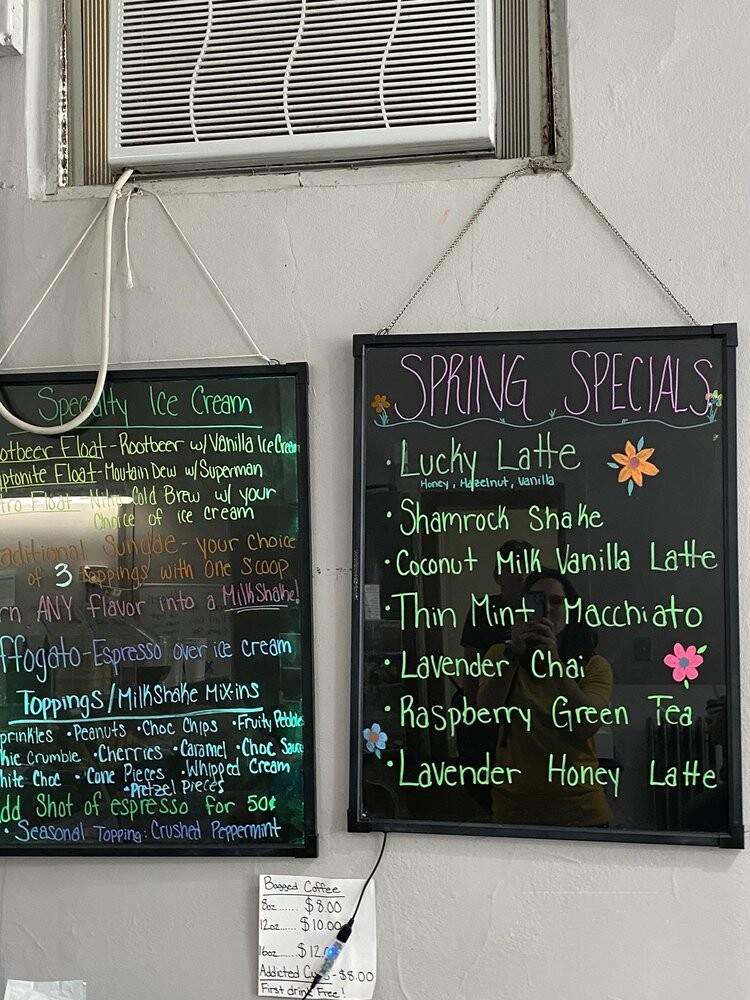 Specialty Ice Cream
otbeer Float - Rootbeer w/ Vanilla Ice Cream
yptonite Float - Moutain Dew w/ Superman
tro Float - Nitro Cold Brew w/ your
Choice of ice cream
aditional Sundae - your choice
of 3 toppings with one scoop
rn ANY flavor into a MilkShake!
ffogato - Espresso over ice cream
Toppings/Milkshake Mix-ins
prinkles • Peanuts • Choc Chips • Fruity Pebbles
kie Crumble • Cherries • Caramel • Choc Sauce
hite Choc • Cone Pieces • Whipped Cream
• Pretzel Pieces
dd Shot of espresso for 50¢
• Seasonal Topping: Crushed Peppermint
SPRING SPECIALS
• Lucky Latte
Honey, Hazelnut, Vanilla
• Shamrock Shake
• Coconut Milk Vanilla Latte
• Thin Mint Macchiato
• Lavender Chai
• Raspberry Green Tea
• Lavender Honey Latte
Bagged Coffee
8oz ...... $8.00
12oz ...... $10.00
16oz ...... $12.
Addicted - $8.00
First drink Free!